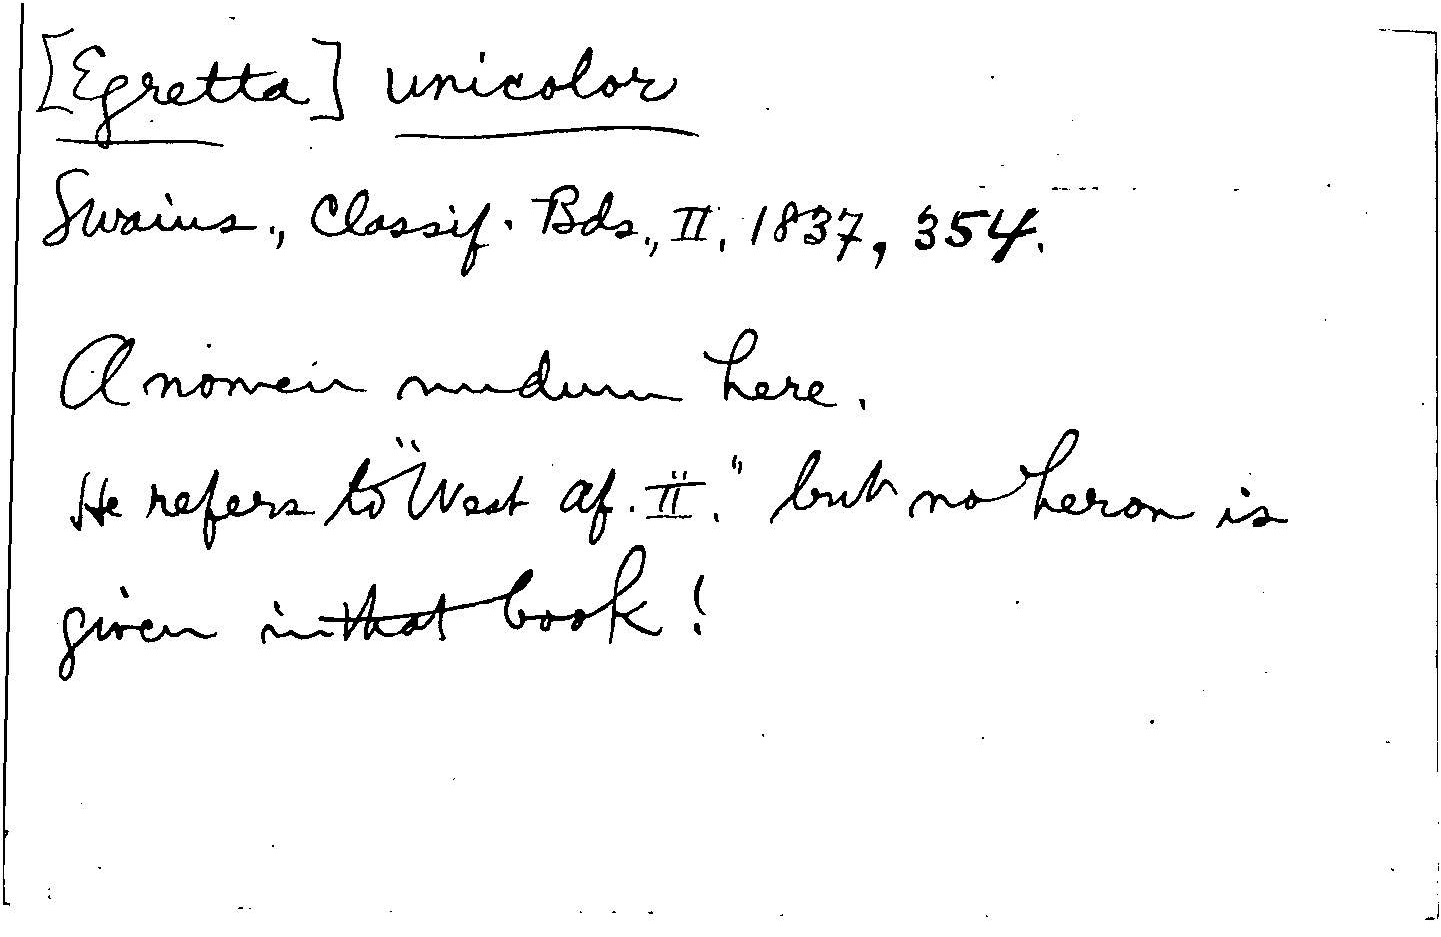 [Egretta] unicolor
Swains., Classif. Bds., II, 1837, 354.
A nomen nudum here.
He refers to "West Af. II." but no heron is
given in that book!